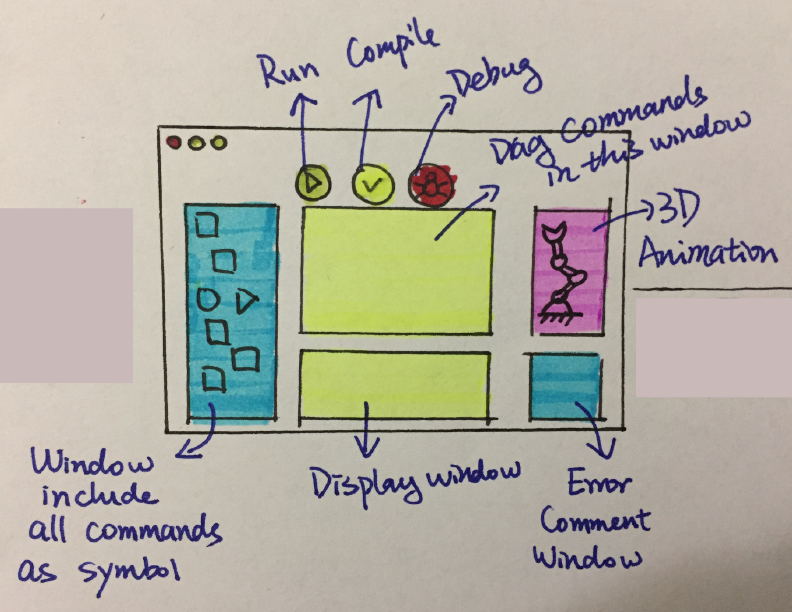 Run
Compile
Debug
Dag Commands
in this window
3D
Animation
Window
include
all commands
as symbol
Display window
Error
Comment
Window